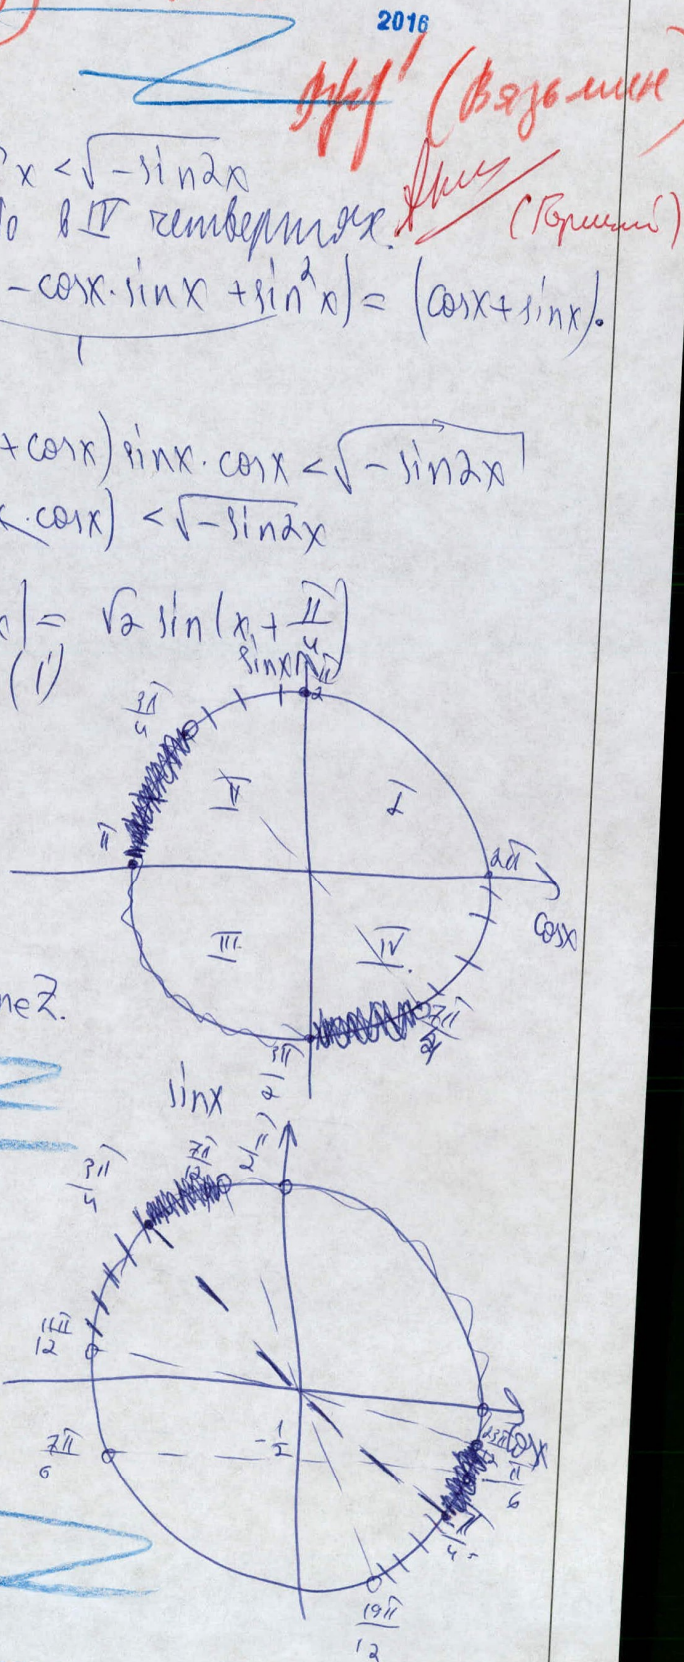 2016
(Вязьмин)
x < √-sin2x
в IV четвертях.
- cosx·sinx + sin²x) = (cosx + sinx)·
1
+ cosx) sinx·cosx < √-sin2x
·cosx) < √-sin2x
= √2 sin(x + π/4)
(1)
sinx
π/2
3π/4
II
I
π
2π
cosx
III
IV
n∈Z.
3π/2
7π/4
sinx
3π/4
7π/12
π/2
11π/12
-1/2
7π/6
23π/12
cosx
-π/6
-π/4
19π/12